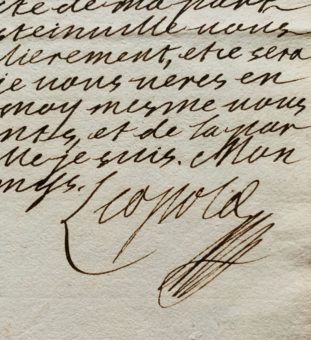 de ma part
steinville vous
lierement, et ce sera
je vous veres en
moy mesme vous
nts, et de la par
lle je suis. Mon
Leopold